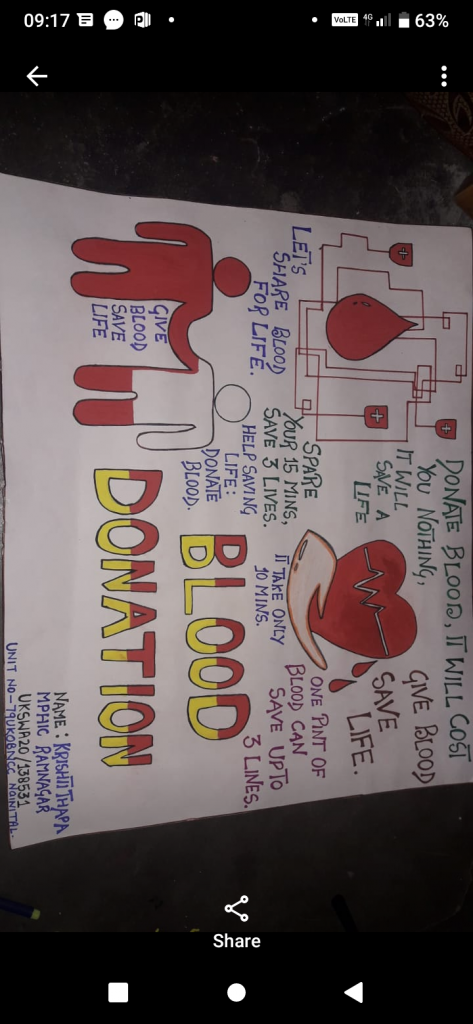 09:17
VoLTE 4G 63%
DONATE BLOOD, IT WILL COST
YOU NOTHING,
IT WILL
SAVE A
LIFE
GIVE BLOOD
SAVE
LIFE.
LET'S
SHARE BLOOD
FOR LIFE.
SPARE
YOUR 15 MINS,
SAVE 3 LIVES.
HELP SAVING
LIFE:
DONATE
BLOOD.
IT TAKE ONLY
10 MINS.
ONE PINT OF
BLOOD CAN
SAVE UPTO
3 LINES.
GIVE
BLOOD
SAVE
LIFE
BLOOD
DONATION
NAME: KRISHTITHAPA
MPHIC RAMNAGAR
UKSWA20/138531
UNIT NO-79UKOBNCC NAINITAL-
Share